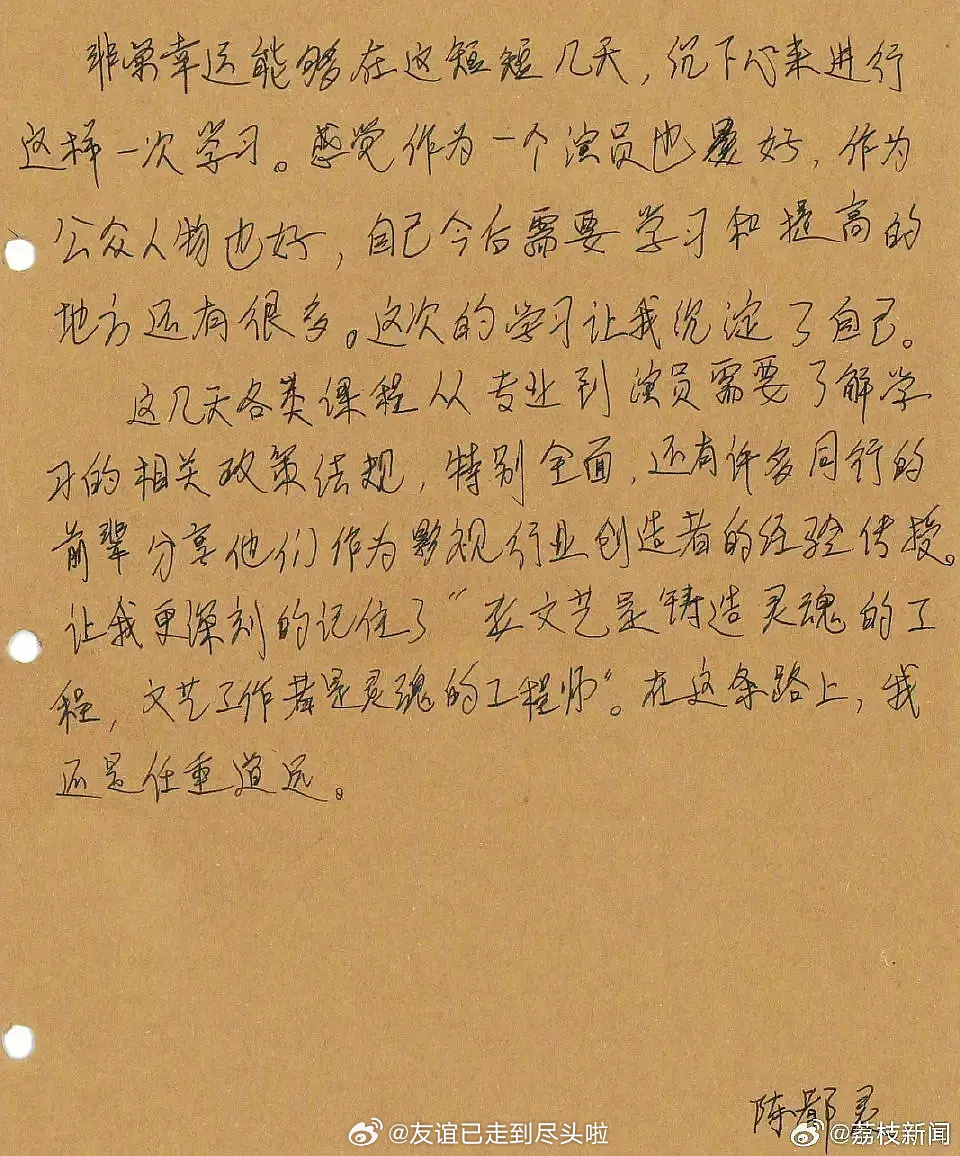 非常幸运能够在这短短几天，沉下心来进行
这样一次学习。感觉作为一个演员也好，作为
公众人物也好，自己今后需要学习和提高的
地方还有很多。这次的学习让我沉淀了自己。
这几天各类课程从专业到演员需要了解学
习的相关政策法规，特别全面，还有许多同行的
前辈分享他们作为影视行业创造者的经验传授。
让我更深刻的记住了“文艺是铸造灵魂的工
程，文艺工作者是灵魂的工程师”。在这条路上，我
还是任重道远。
陈都灵
@友谊已走到尽头啦
@荔枝新闻